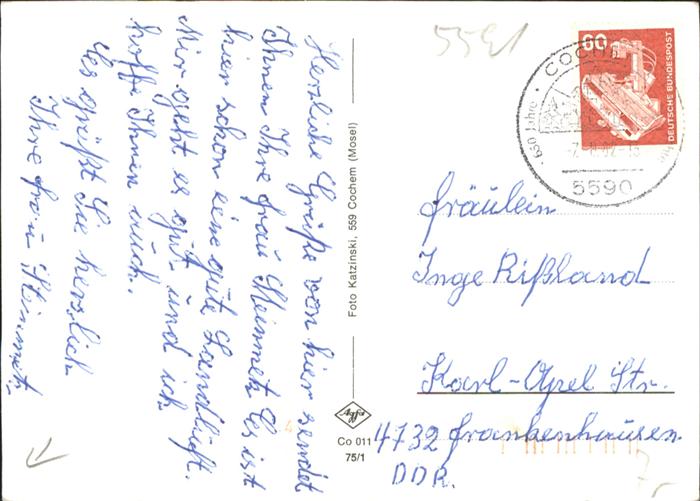 Herzliche Grüße von hier sendet
Ihnen Ihre frau Steinmetz. Es ist
hier schon eine gute Landluft.
Mir geht es gut und ich
hoffe Ihnen auch.
Es grüßt Sie herzlich
Ihre frau Steinmetz
Foto Katzinski, 559 Cochem (Mosel)
Agfa
Co 011
75/1
5591
60
DEUTSCHE BUNDESPOST
COCHEM
650 Jahre
5590
fräulein
Inge Rißland
Karl-Apel Str.
4732 frankenhausen
DDR.